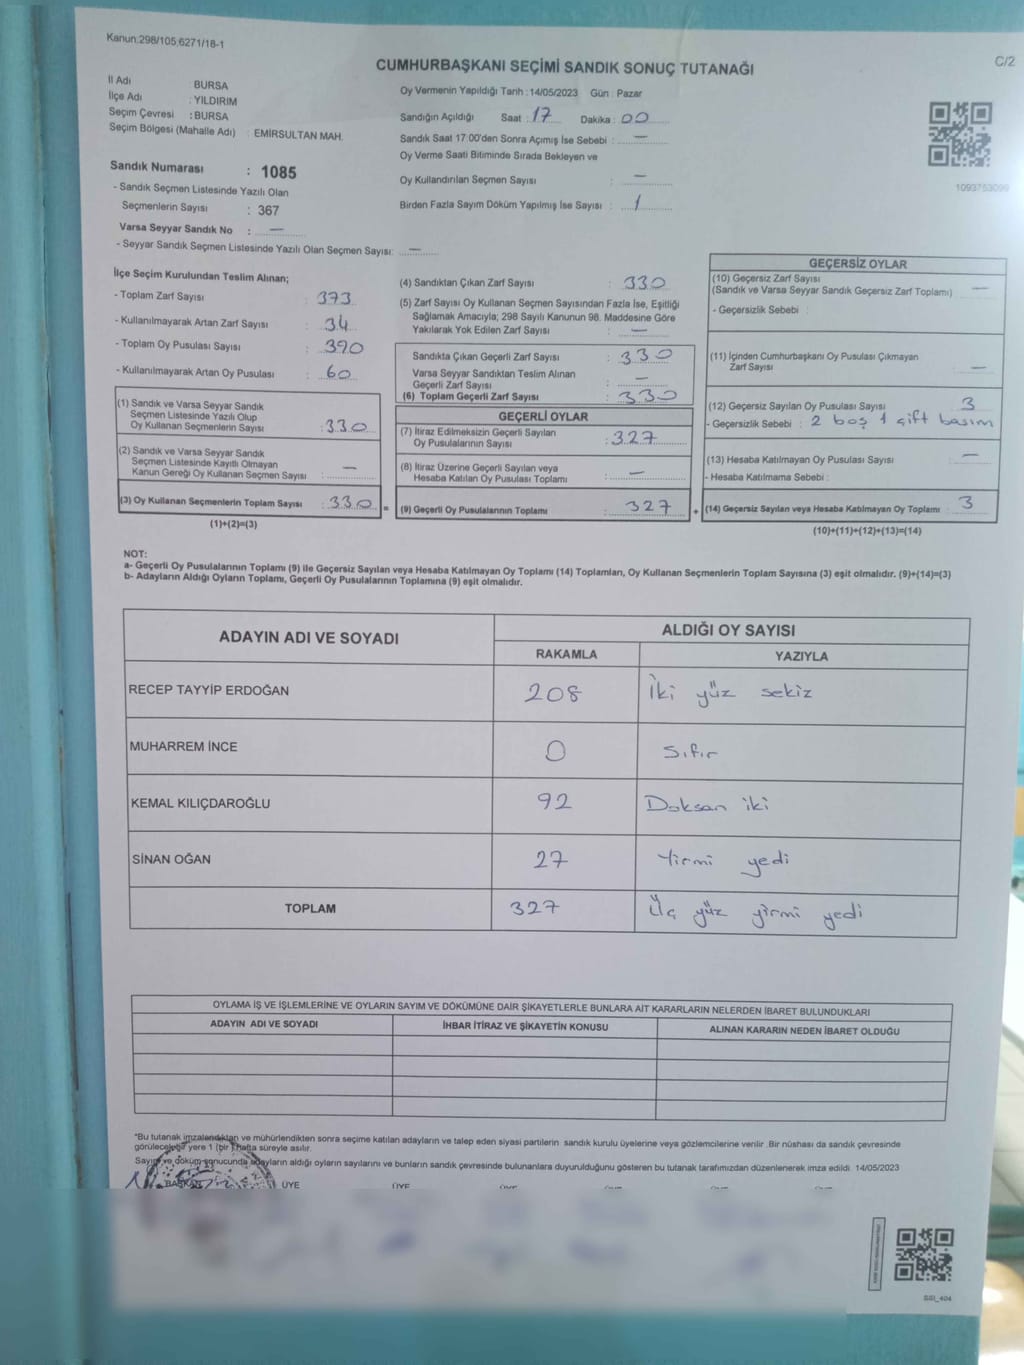 Kanun:298/105,6271/18-1
C/2
CUMHURBAŞKANI SEÇİMİ SANDIK SONUÇ TUTANAĞI
İl Adı : BURSA
İlçe Adı : YILDIRIM
Seçim Çevresi : BURSA
Seçim Bölgesi (Mahalle Adı) : EMİRSULTAN MAH.
Sandık Numarası : 1085
- Sandık Seçmen Listesinde Yazılı Olan
Seçmenlerin Sayısı : 367
Varsa Seyyar Sandık No : —
- Seyyar Sandık Seçmen Listesinde Yazılı Olan Seçmen Sayısı: —
Oy Vermenin Yapıldığı Tarih :14/05/2023 Gün : Pazar
Sandığın Açıldığı Saat : 17 Dakika : 00
Sandık Saat 17:00'den Sonra Açımış İse Sebebi : —
Oy Verme Saati Bitiminde Sırada Bekleyen ve
Oy Kullandırılan Seçmen Sayısı : —
Birden Fazla Sayım Döküm Yapılmış İse Sayısı : 1
1093753099
İlçe Seçim Kurulundan Teslim Alınan;
- Toplam Zarf Sayısı : 373
- Kullanılmayarak Artan Zarf Sayısı : 34
- Toplam Oy Pusulası Sayısı : 390
- Kullanılmayarak Artan Oy Pusulası : 60
(1) Sandık ve Varsa Seyyar Sandık
Seçmen Listesinde Yazılı Olup
Oy Kullanan Seçmenlerin Sayısı : 330
(2) Sandık ve Varsa Seyyar Sandık
Seçmen Listesinde Kayıtlı Olmayan
Kanun Gereği Oy Kullanan Seçmen Sayısı : —
(3) Oy Kullanan Seçmenlerin Toplam Sayısı : 330 =
(1)+(2)=(3)
(4) Sandıktan Çıkan Zarf Sayısı : 330
(5) Zarf Sayısı Oy Kullanan Seçmen Sayısından Fazla İse, Eşitliği
Sağlamak Amacıyla; 298 Sayılı Kanunun 98. Maddesine Göre
Yakılarak Yok Edilen Zarf Sayısı : —
Sandıkta Çıkan Geçerli Zarf Sayısı : 330
Varsa Seyyar Sandıktan Teslim Alınan
Geçerli Zarf Sayısı : —
(6) Toplam Geçerli Zarf Sayısı : 330
GEÇERLİ OYLAR
(7) İtiraz Edilmeksizin Geçerli Sayılan
Oy Pusulalarının Sayısı : 327
(8) İtiraz Üzerine Geçerli Sayılan veya
Hesaba Katılan Oy Pusulası Toplamı : —
(9) Geçerli Oy Pusulalarının Toplamı : 327 +
GEÇERSİZ OYLAR
(10) Geçersiz Zarf Sayısı
(Sandık ve Varsa Seyyar Sandık Geçersiz Zarf Toplamı) —
- Geçersizlik Sebebi :
(11) İçinden Cumhurbaşkanı Oy Pusulası Çıkmayan
Zarf Sayısı : —
(12) Geçersiz Sayılan Oy Pusulası Sayısı : 3
- Geçersizlik Sebebi : 2 boş 1 çift basım
(13) Hesaba Katılmayan Oy Pusulası Sayısı : —
- Hesaba Katılmama Sebebi :
(14) Geçersiz Sayılan veya Hesaba Katılmayan Oy Toplamı : 3
(10)+(11)+(12)+(13)=(14)
NOT:
a- Geçerli Oy Pusulalarının Toplamı (9) ile Geçersiz Sayılan veya Hesaba Katılmayan Oy Toplamı (14) Toplamları, Oy Kullanan Seçmenlerin Toplam Sayısına (3) eşit olmalıdır. (9)+(14)=(3)
b- Adayların Aldığı Oyların Toplamı, Geçerli Oy Pusulalarının Toplamına (9) eşit olmalıdır.
ADAYIN ADI VE SOYADI ALDIĞI OY SAYISI
RAKAMLA YAZIYLA
RECEP TAYYİP ERDOĞAN 208 İki yüz sekiz
MUHARREM İNCE 0 Sıfır
KEMAL KILIÇDAROĞLU 92 Doksan iki
SİNAN OĞAN 27 Yirmi yedi
TOPLAM 327 Üç yüz yirmi yedi
OYLAMA İŞ VE İŞLEMLERİNE VE OYLARIN SAYIM VE DÖKÜMÜNE DAİR ŞİKAYETLERLE BUNLARA AİT KARARLARIN NELERDEN İBARET BULUNDUKLARI
ADAYIN ADI VE SOYADI İHBAR İTİRAZ VE ŞİKAYETİN KONUSU ALINAN KARARIN NEDEN İBARET OLDUĞU
*Bu tutanak imzalandıktan ve mühürlendikten sonra seçime katılan adayların ve talep eden siyasi partilerin sandık kurulu üyelerine veya gözlemcilerine verilir .Bir nüshası da sandık çevresinde
görülecek bir yere 1 (bir) hafta süreyle asılır.
Sayım ve döküm sonucunda adayların aldığı oyların sayılarını ve bunların sandık çevresinde bulunanlara duyurulduğunu gösteren bu tutanak tarafımızdan düzenlenerek imza edildi. 14/05/2023
BAŞKAN ÜYE ÜYE
SSI_404